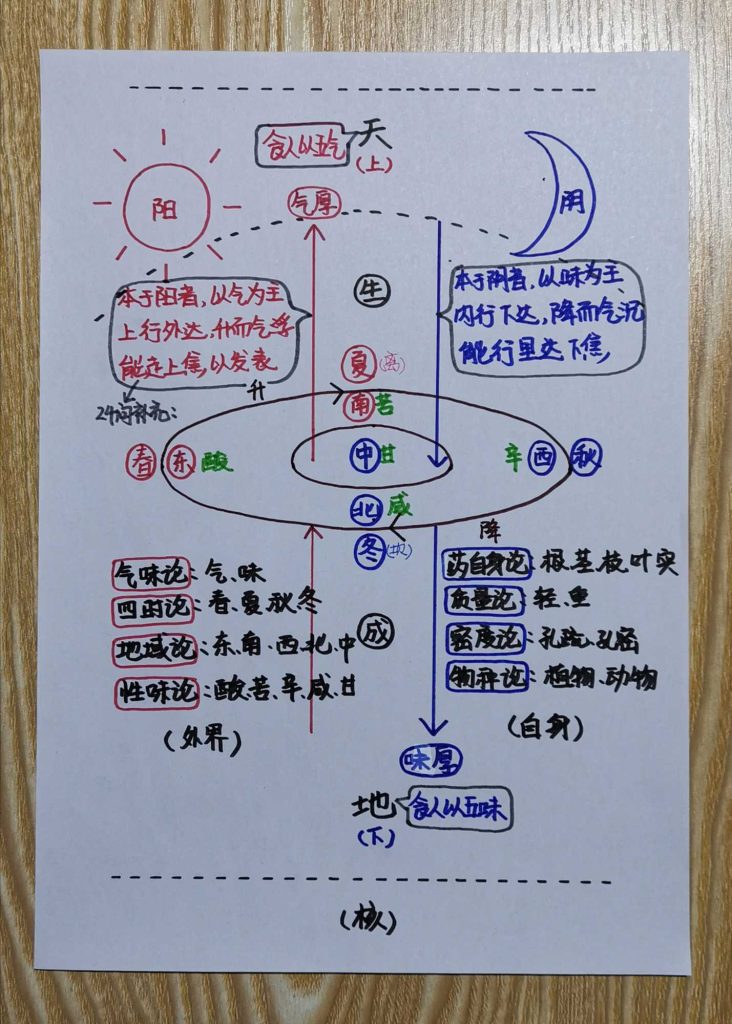 食人以五气
天
(上)
阳
气厚
阴
本于阳者,以气为主
上行外达,升而气浮
能走上焦,以发表
本于阴者,以味为主、
内行下达,降而气沉
能行里达下焦,
生
夏(离)
升
南苦
春 东 酸
中甘
辛 西 秋
北 咸
冬(坎)
降
气味论:气、味
四时论:春、夏、秋、冬
地域论:东、南、西、北、中
性味论:酸、苦、辛、咸、甘
(外界)
成
药自身论:根、茎、枝、叶实
质量论:轻、重
密度论:孔疏、孔密
物种论:植物、动物
(自身)
味厚
地
食人以五味
(下)
(核)